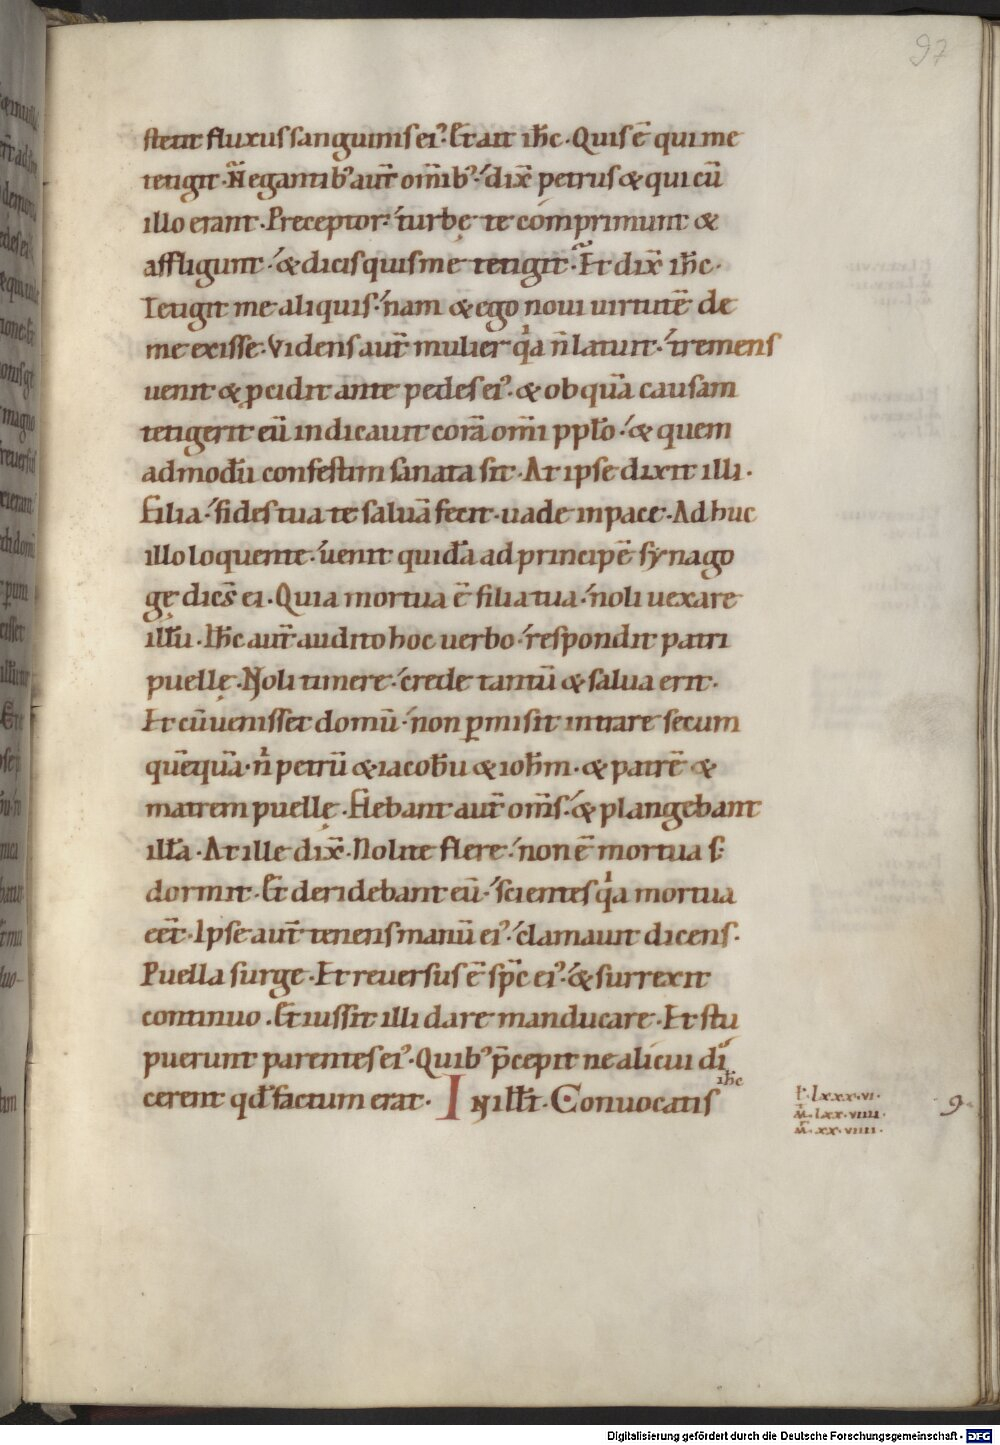 97
stetit fluxus sanguinis ei᾽. Et ait ih̄c. Quis ē qui me
tetigit. Negantib᾽ aut̄ om̄ib᾽. dix̄ petrus & qui cū
illo erant. Preceptor. turbę te comprimunt &
affligunt. & dicis quis me tetigit. Et dix̄ ih̄c.
Tetigit me aliquis. nam & ego noui uirtutē de
me exisse. Videns aut̄ mulier qͥa n̄ latuit. tremens
uenit & ꝓcidit ante pedes ei᾽. & ob quā causam
tetigerit eū indicauit corā om̄i ppl̄o. & quem
admodū confestim sanata sit. At ipse dixit illi.
Filia. fides tua te saluā fecit. uade in pace. Adhuc
illo loquente. uenit quidā ad principē synago
gę dic̄s ei. Quia mortua ē filia tua. noli uexare
illū. Ih̄c aut̄ audito hoc uerbo. respondit patri
puellę. Noli timere. crede tantū & salua erit.
Et cū uenisset domū. non ꝑmisit intrare secum
quēquā. nͥ petrū & iacobū & ioh̄m. & patrē &
matrem puellę. Flebant aut̄ om̄s. & plangebant
illā. At ille dix̄. Nolite flere. non ē mortua s;
dormit. Et deridebant eū. scientes qͥa mortua
eēt. Ipse aut̄ tenens manū ei᾽. clamauit dicens.
Puella surge. Et reuersus ē sp̄c ei᾽. & surrexit
continuo. Et iussit illi dare manducare. Et stu
puerunt parentes ei᾽. Quib᾽ p̄cepit ne alicui di
cerent qd̄ factum erat. In ill̄t. Conuocatis ih̄c
l. lxxx.vi.
m̄. lxx.viiii.
m̄. xx.viiii.
9.
Digitalisierung gefördert durch die Deutsche Forschungsgemeinschaft - DFG